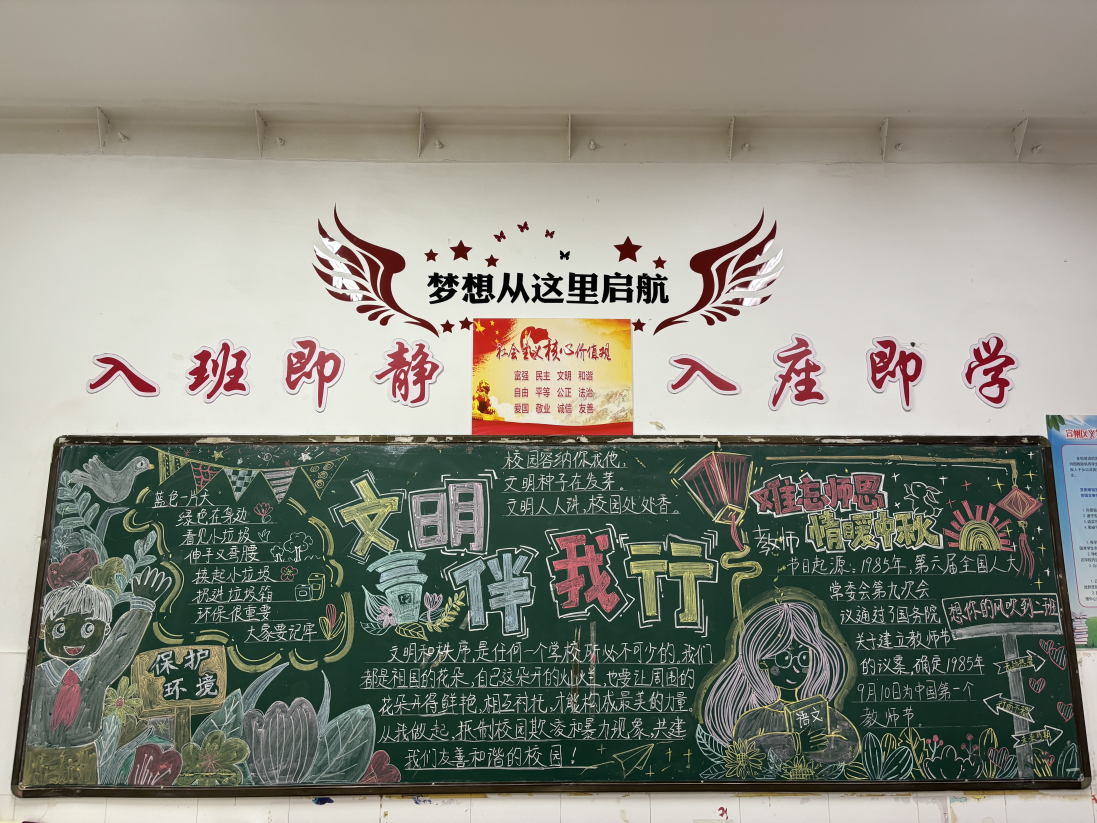 梦想从这里启航
入班即静
社会主义核心价值观
富强 民主 文明 和谐
自由 平等 公正 法治
爱国 敬业 诚信 友善
入座即学
蓝色一片大
绿色在身边
看见小垃圾
伸手又弯腰
捡起小垃圾
扔进垃圾箱
环保很重要
大家要记牢
保护
环境
校园容纳你我他,
文明种子在发芽。
文明人人讲,校园处处香。
文明
言伴我行
文明和秩序,是任何一个学校所必不可少的,我们
都是祖国的花朵,自己这朵开的灿烂,也要让周围的
花朵开得鲜艳,相互衬托,才能构成最美的力量
从我做起,抵制校园欺凌和暴力现象,共建
我们友善和谐的校园!
难忘师恩
情暖中秋
教师
节日起源:1985年,第六届全国人大
常委会第九次会
议通过了国务院
关于建立教师节
的议案,确定1985年
9月10日为中国第一个
教师节。
语文
想你的风吹到二班